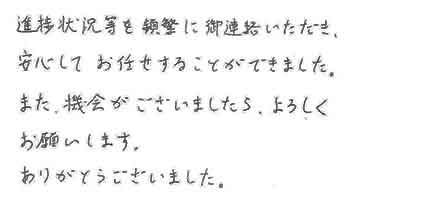 進捗状況等を頻繁に御連絡いただき、
安心してお任せすることができました。
また、機会がございましたら、よろしく
お願いします。
ありがとうございました。